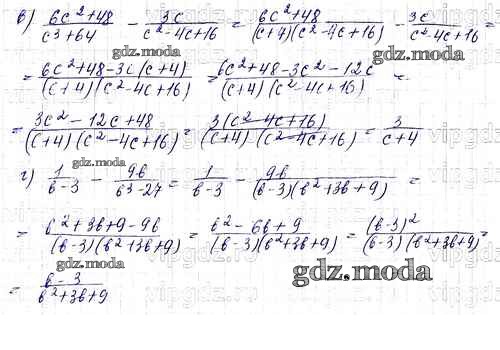 в) (6c²+48)/(c³+64) - 3c/(c²-4c+16) = (6c²+48)/((c+4)(c²-4c+16)) - 3c/(c²-4c+16) =
gdz.moda
gdz.moda
= (6c²+48-3c(c+4))/((c+4)(c²-4c+16)) = (6c²+48-3c²-12c)/((c+4)(c²-4c+16)) =
= (3c²-12c+48)/((c+4)(c²-4c+16)) = (3(c²-4c+16))/((c+4)(c²-4c+16)) = 3/(c+4)
gdz.moda
г) 1/(в-3) - 9в/(в³-27) = 1/(в-3) - 9в/((в-3)(в²+3в+9)) =
= (в²+3в+9-9в)/((в-3)(в²+3в+9)) = (в²-6в+9)/((в-3)(в²+3в+9)) = (в-3)²/((в-3)(в²+3в+9)) =
gdz.moda
gdz.moda
= (в-3)/(в²+3в+9)